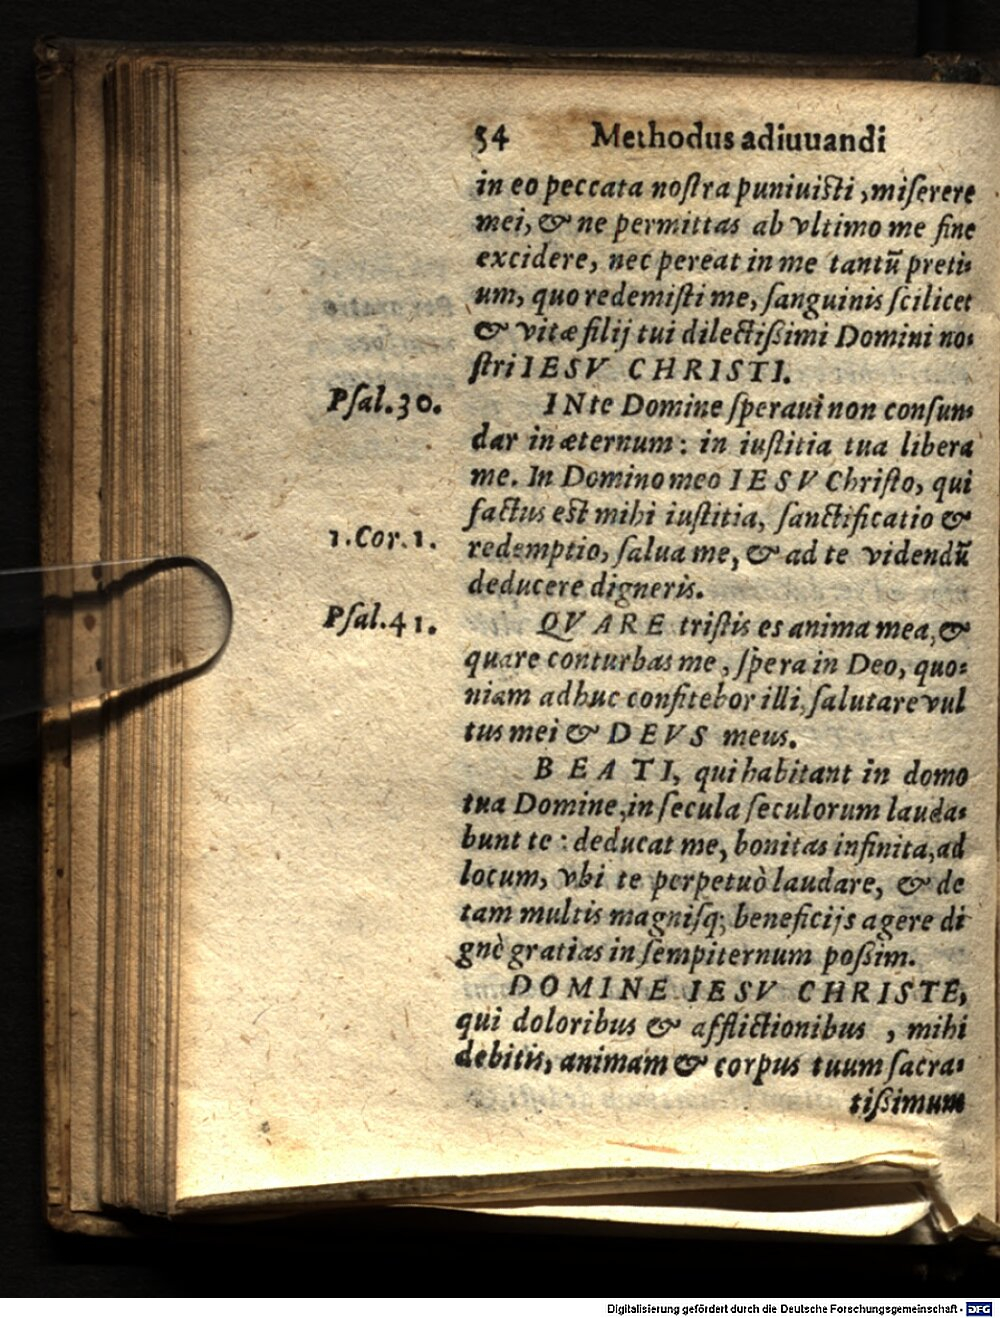 54 Methodus adiuuandi
in eo peccata noſtra puniuiſti, miſerere
mei, & ne permittas ab vltimo me fine
excidere, nec pereat in me tantū preti-
um, quo redemiſti me, ſanguinis ſcilicet
& vitæ filij tui dilectißimi Domini no-
ſtri IESV CHRISTI.
Pſal.30.
INte Domine ſperaui non confun-
dar in æternum: in iuſtitia tua libera
me. In Domino meo IESV Chriſto, qui
factus eſt mihi iuſtitia, ſanctificatio &
1.Cor.1.
redemptio, ſalua me, & ad te videndū
deducere digneris.
Pſal.41.
QVARE triſtis es anima mea, &
quare conturbas me, ſpera in Deo, quo-
niam adhuc confitebor illi, ſalutare vul
tus mei & DEVS meus.
BEATI, qui habitant in domo
tua Domine, in ſecula ſeculorum lauda-
bunt te: deducat me, bonitas infinita, ad
locum, vbi te perpetuò laudare, & de
tam multis magniſq; beneficijs agere di
gnè gratias in ſempiternum poßim.
DOMINE IESV CHRISTE,
qui doloribus & afflictionibus, mihi
debitis, animam & corpus tuum ſacra-
tißimum
Digitalisierung gefördert durch die Deutsche Forschungsgemeinschaft - DFG